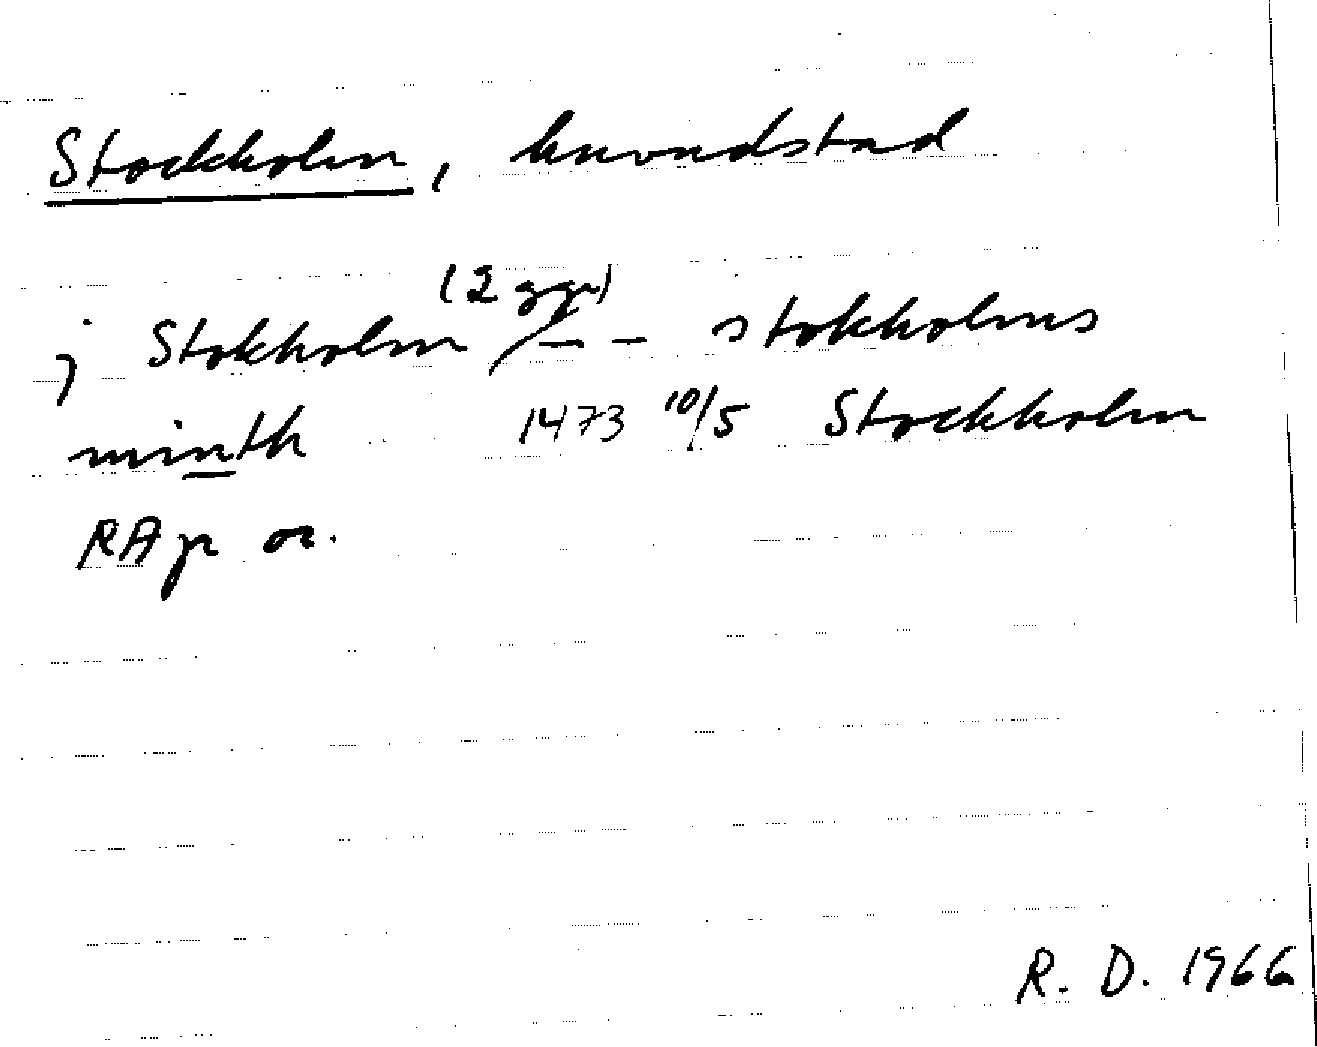 Stockholm, huvudstad
(2 ggr)
j Stokholm /-- stokholms
minth 1473 10/5 Stockholm
RAp or.
R. D. 1966